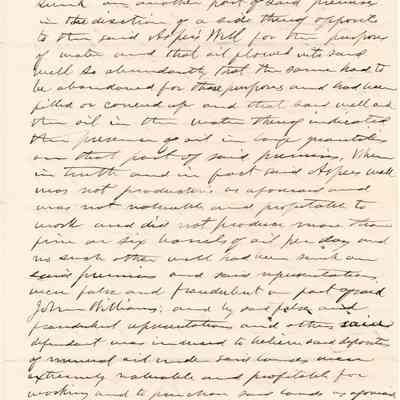 sunk on another part of said premises
in the direction of a side thereof opposite
to the said Aspers Well for the purpose
of water and that oil flowed into said
well so abundantly that the same had to
be abandoned for those purposes and had been
filled or covered up and that said well and
the oil in the water thereof indicated
the presence of oil in large quantities
on that part of said premises. When
in truth and in fact said Aspers well
was not productive as aforesaid and
was not valuable and profitable to
work and did not produce more than
five or six barrels of oil per day and
no such other well had been sunk on
said premises and said representations
were false and fraudulent on part of said
John Williams; and by said false and
fraudulent representations and others said
defendant was induced to believe said deposits
of mineral oil under said lands were
extremely valuable and profitable for
working and to purchase said lands as aforesaid